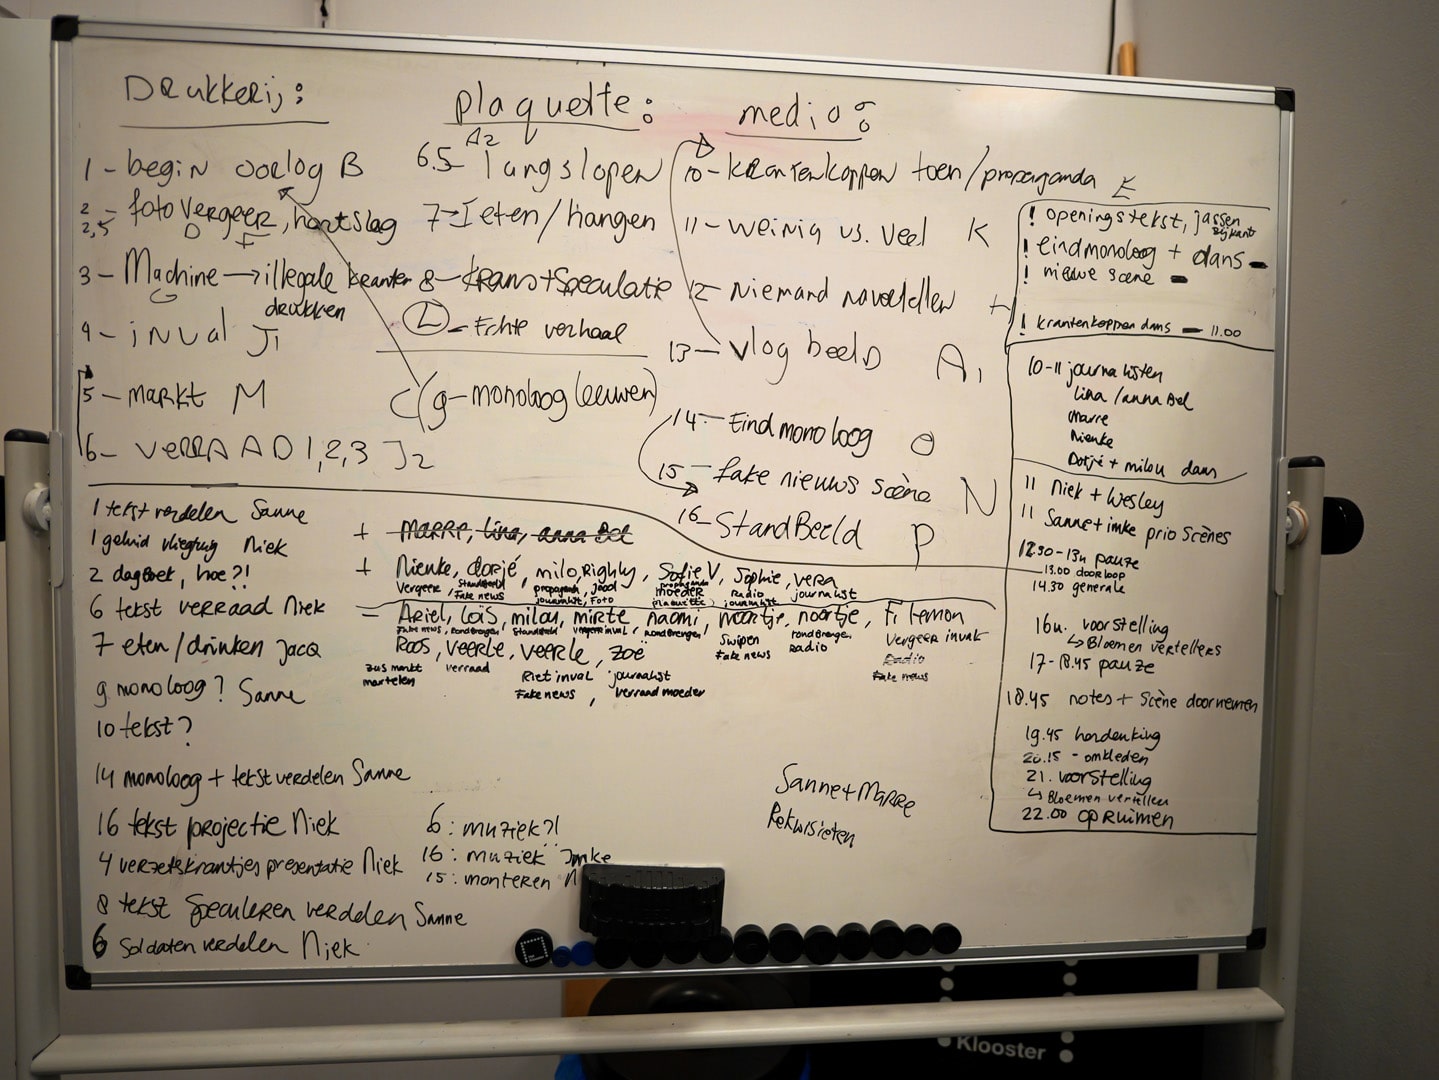 Drukkerij:
1 - begin oorlog B
2 - foto Vergeer, hartslag
2,5 D F
3 - Machine → illegale kranten
G drukken
4 - inval J1
5 - markt M
6 - VERRAAD 1,2,3 J2
plaquette:
A2
6.5 - langslopen
7 - I eten/hangen
8 - krans + Speculatie
L - Echte verhaal
C (9 - monoloog leeuwen)
media:
10 - krantenkoppen toen/propaganda E
11 - weinig vs. veel K
12 - niemand navertellen H
13 - vlog beeld A1
14 - Eindmonoloog O
15 - fake nieuws scène N
16 - StandBeeld P
! openingstekst, jassen
Bijkant
! eindmonoloog + dans -
! nieuwe scene -
! krantenkoppen dans - 11.00
10-11 journalisten
lina/anna Bel
Marre
Nienke
Dorjé + milou dans
11 Niek + Wesley
11 Sanne + imke prio scènes
12.30-13u pauze
13.00 doorloop
14.30 generale
16u. voorstelling
↳ Bloemen vertellers
17-18.45 pauze
18.45 notes + Scène doornemen
19.45 herdenking
20.15 - omkleden
21. voorstelling
↳ Bloemen vertellen
22.00 opruimen
1 tekst verdelen Sanne
1 geluid vliegtuig Niek
2 dagboek, hoe?!
6 tekst verraad Niek
7 eten/drinken Jacq
9 monoloog? Sanne
10 tekst?
14 monoloog + tekst verdelen Sanne
16 tekst projectie Niek
4 verzetskrantjes presentatie Niek
8 tekst Speculeren verdelen Sanne
6 Soldaten verdelen Niek
6: muziek?!
16: muziek Imke
15: monteren N
+ MARRE, lina, anna Bel
+ Nienke, dorjé, milo, Righly, Sofie V, Sophie, vera
Vergeer, Standbeeld propaganda, jood propaganda radio journalist
Fake news journalist, Foto moeder journalist
plaquette,
= Ariel, Loïs, milou, mirte, naomi, noortje, noortje, Filemon
Fake news, rondbrengen, Standbeeld, rondbrengen, Swipen rondBrengen, Vergeer inval
Fake news Radio Radio
Fake news
Roos, Veerle, Veerle, zoë
zus markt verraad Riet inval journalist
martelen Fake news, verraad moeder
Sanne + MARRE
Rekwisieten
Klooster